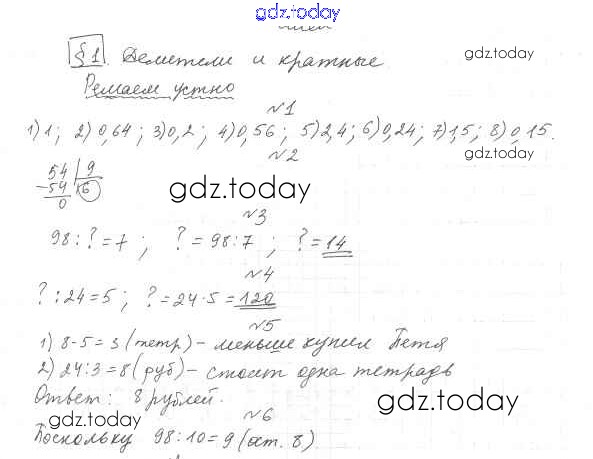 gdz.today
§1. Делители и кратные
gdz.today
Решаем устно
№1
1) 1; 2) 0,64; 3) 0,2; 4) 0,56; 5) 2,4; 6) 0,24; 7) 1,5; 8) 0,15.
№2
gdz.today
54 | 9
-54 | 6
0
gdz.today
№3
98 : ? = 7 ; ? = 98 : 7 ; ? = 14
№4
? : 24 = 5 ; ? = 24 · 5 = 120
gdz.today
№5
1) 8-5=3 (тетр) - меньше купил Петя
2) 24:3=8 (руб) - стоит одна тетрадь
Ответ: 8 рублей.
gdz.today
№6
gdz.today
Поскольку 98:10=9 (ост. 8)
gdz.today